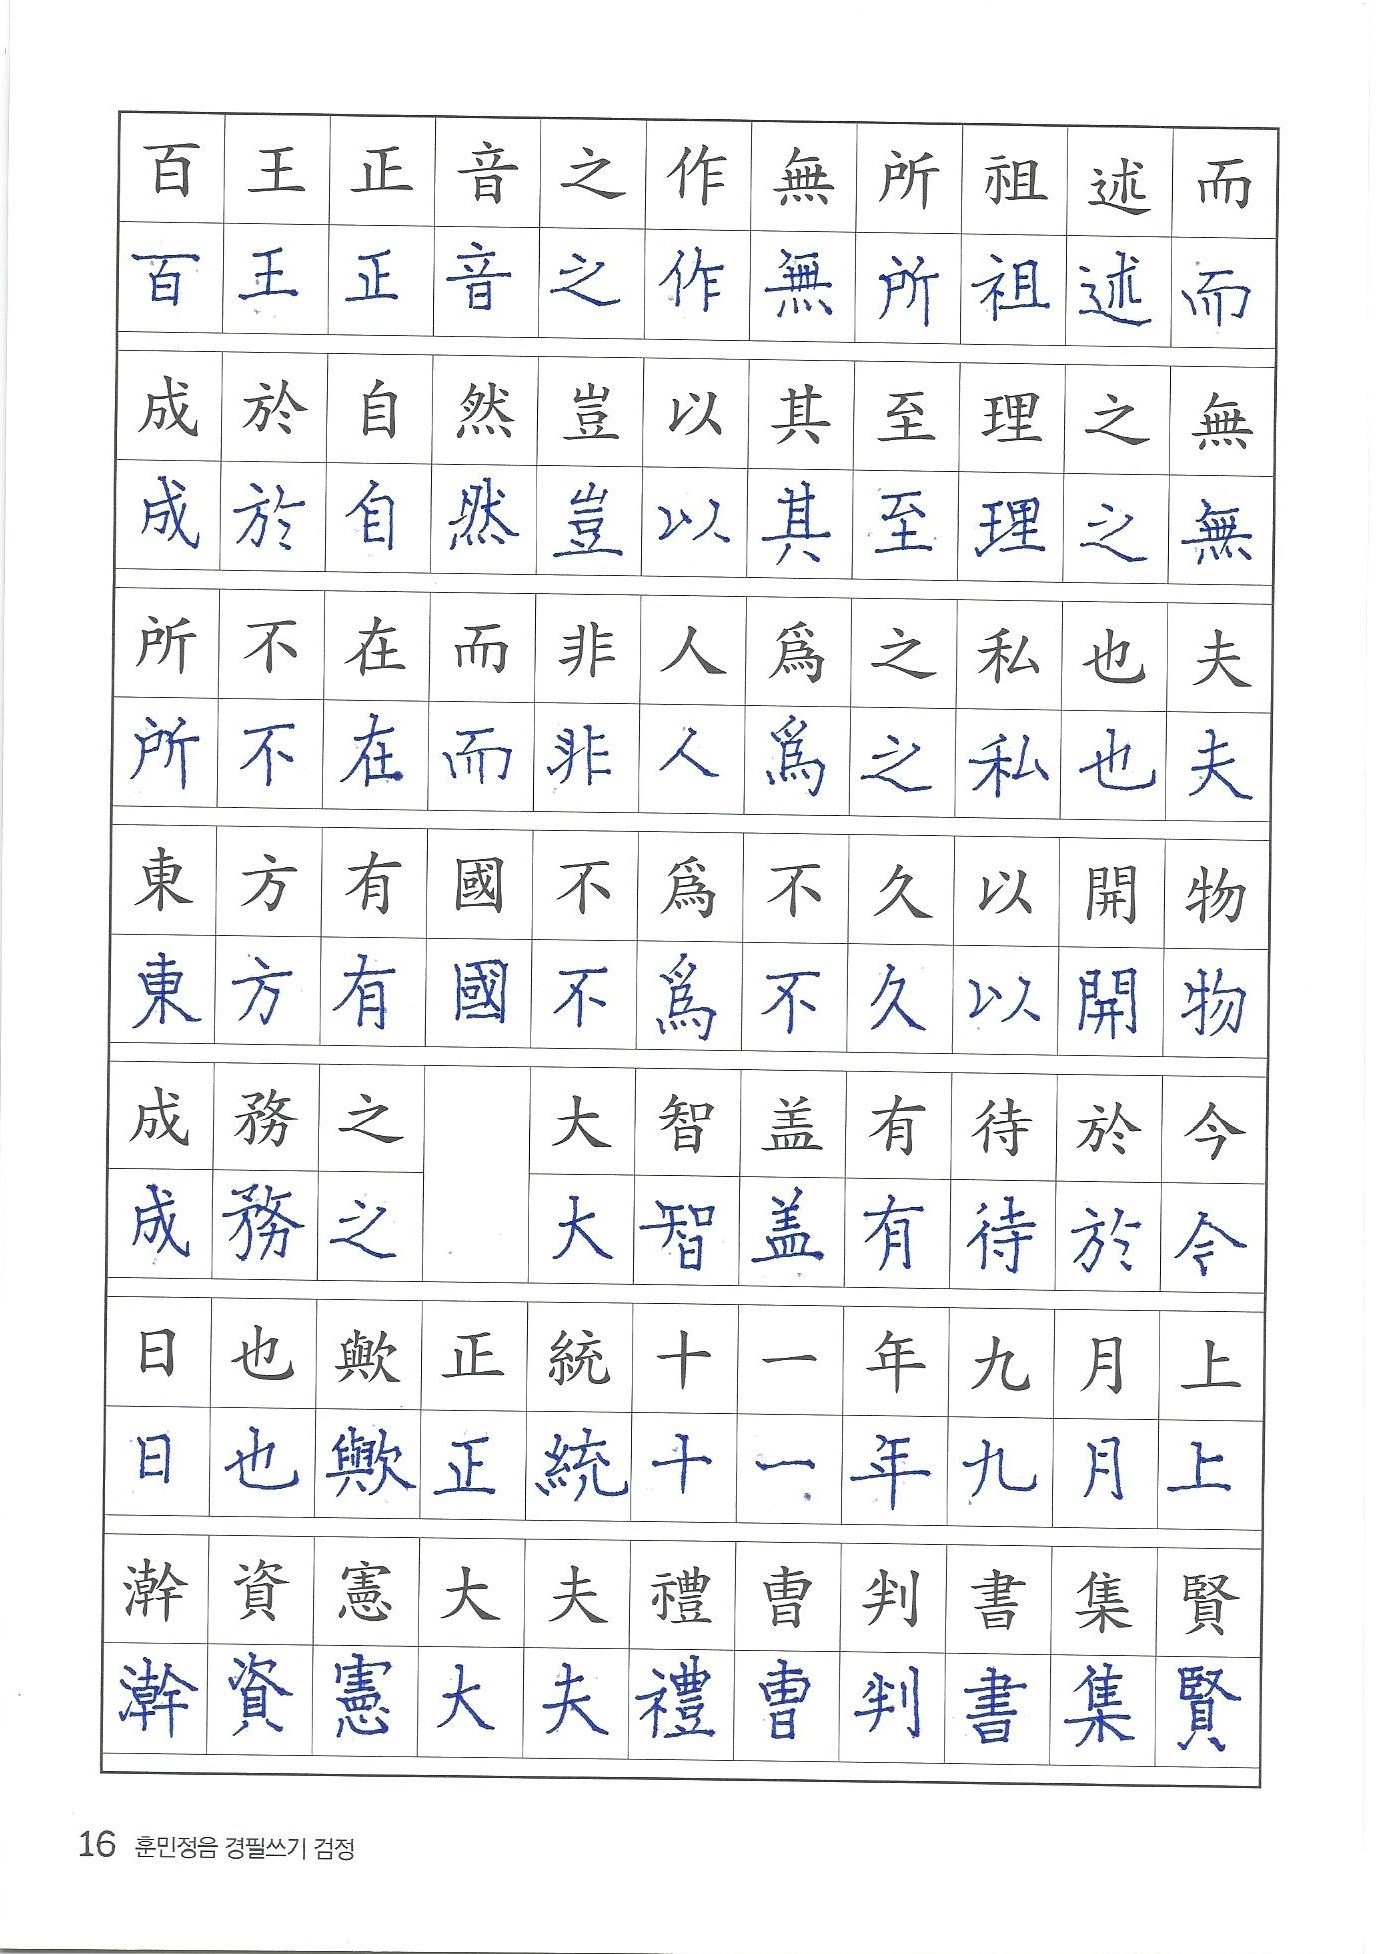 百王正音之作無所祖述而
百王正音之作無所祖述而
成於自然豈以其至理之無
成於自然豈以其至理之無
所不在而非人爲之私也夫
所不在而非人爲之私也夫
東方有國不爲不久以開物
東方有國不爲不久以開物
成務之 大智盖有待於今
成務之 大智盖有待於今
日也歟正統十一年九月上
日也歟正統十一年九月上
澣資憲大夫禮曺判書集賢
澣資憲大夫禮曺判書集賢
16 훈민정음 경필쓰기 검정